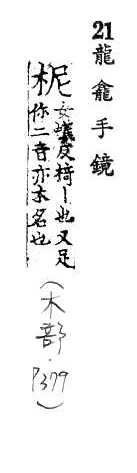 21 龍龕手鏡
柅
女蟻反椅丨也又足
你二音亦木名也
(木部·P379)